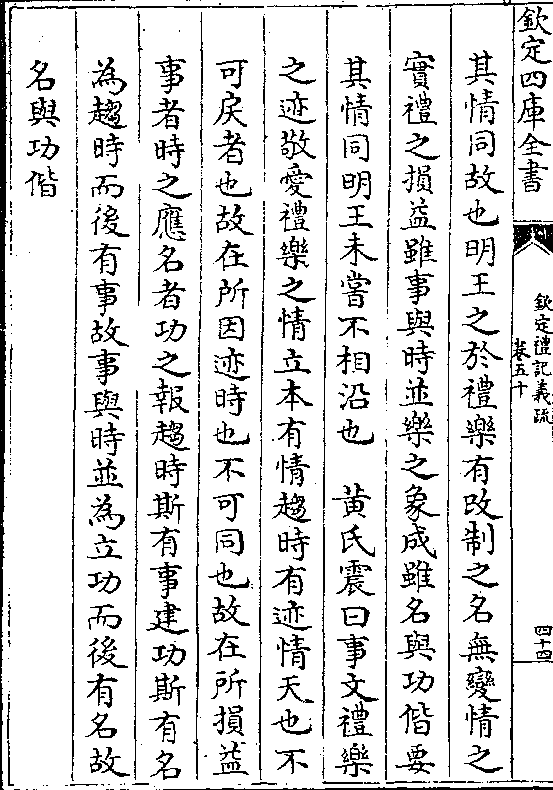 欽定四庫全書
欽定禮記義疏
卷五十
四十四
其情同故也明王之於禮樂有改制之名無變情之
實禮之損益雖事與時並樂之象成雖名與功偕要
其情同明王未嘗不相沿也　黄氏震曰事文禮樂
之迹敬愛禮樂之情立本有情趨時有迹情天也不
可戾者也故在所因迹時也不可同也故在所損益
事者時之應名者功之報趨時斯有事建功斯有名
為趨時而後有事故事與時並為立功而後有名故
名與功偕